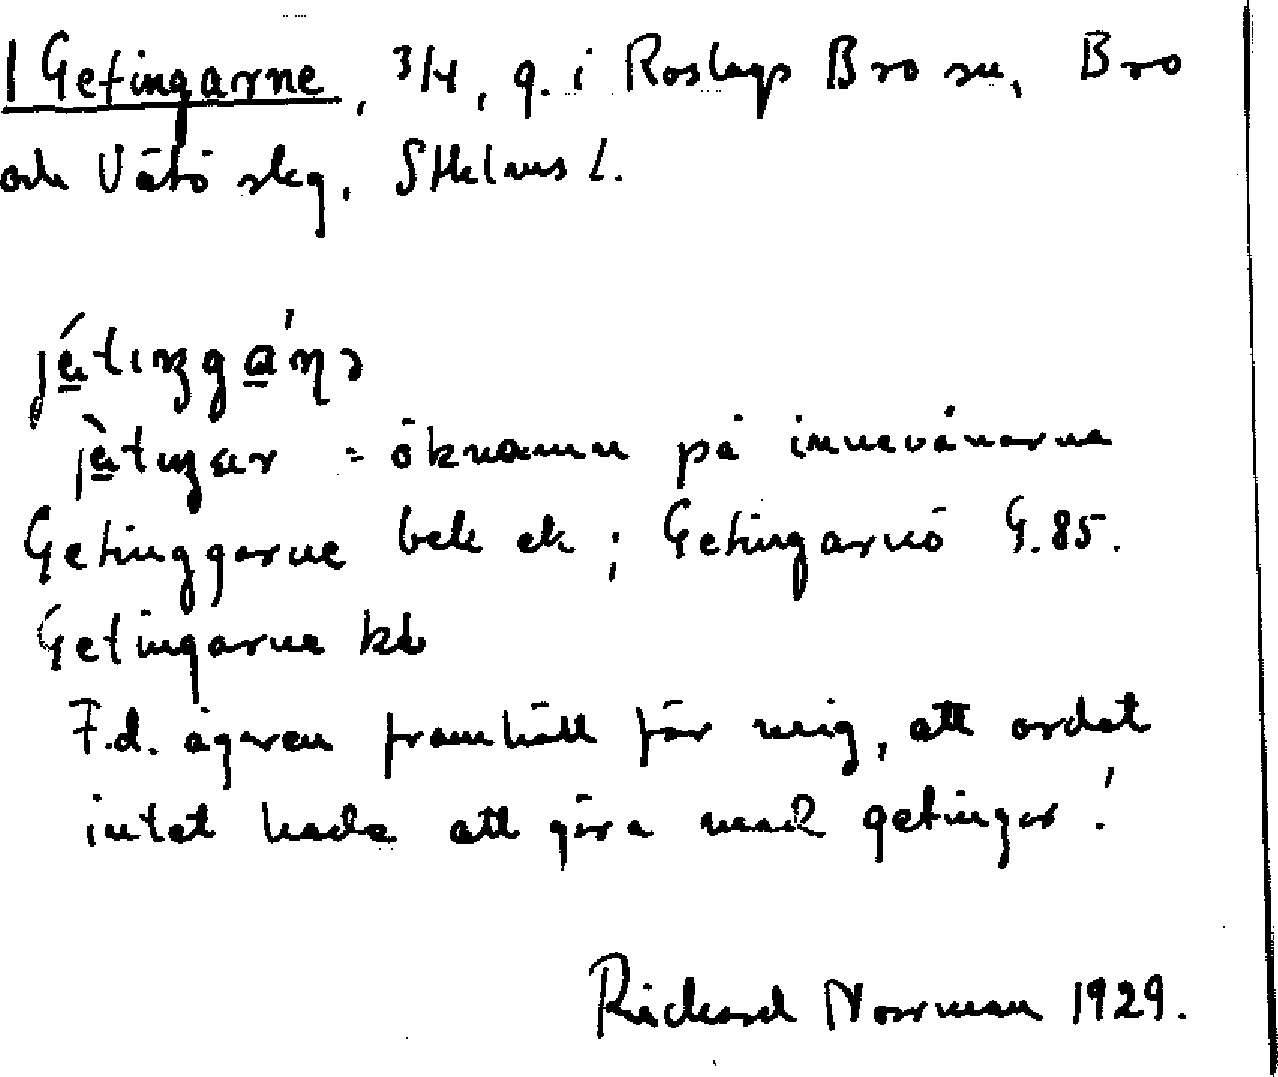 1 Getingarne, 3/4, g. i Roslags Bro sn, Bro
och Vätö skg, Sthlms l.
jä́tiŋgá̱ṇə
jä̀tiŋar = öknamn på innevånarna
Getinggarne bek ek; Getingarnö G. 85.
Getingarne kb
F.d. ägaren framhöll för mig, att ordet
intet hade att göra med getingar!
Rickard Norrman 1929.